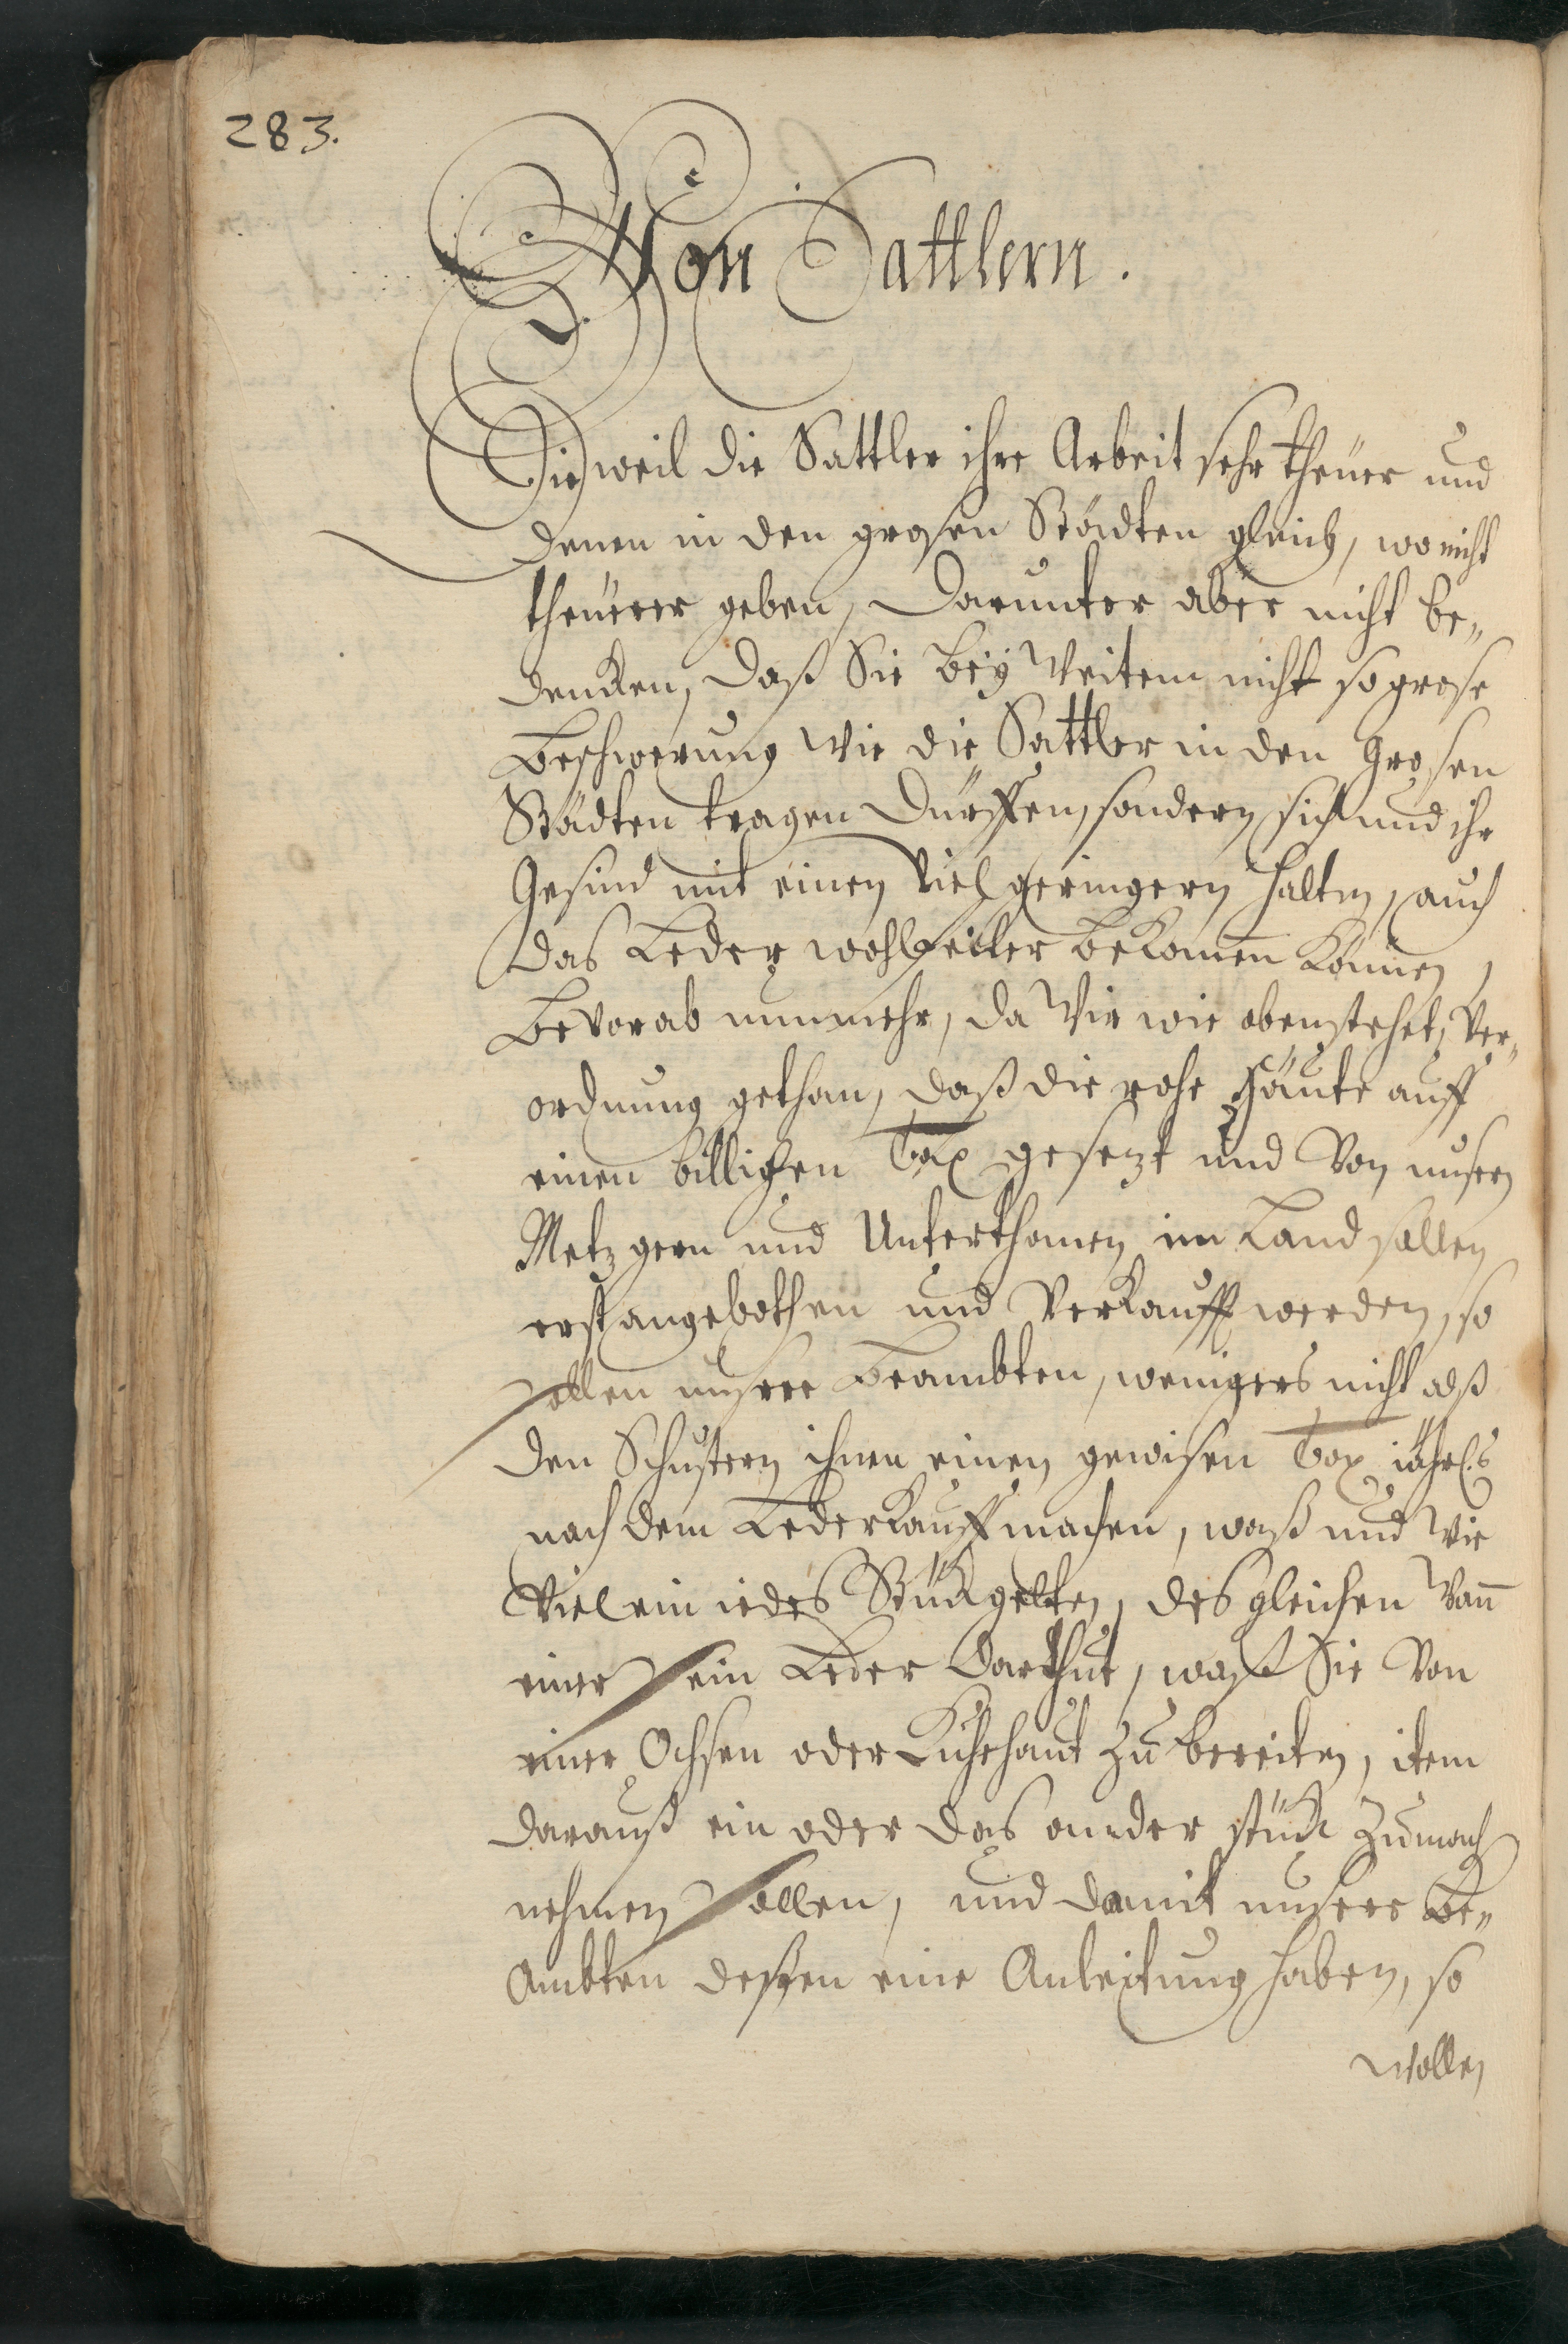 283.
Von Sattlern.
Dieweil die Sattler ihre Arbeit sehr theüer und
denen in den grosen Städten gleich, wo nicht
theüerer geben, darunter aber nicht be„
dencken, daß Sie beÿ Weitem nicht so grose
Beschwerung wie die Sattler in den Grosen
Städten tragen dürffen, sondern sich und ihr
Gesind mit einen viel geringern halten, auch
das Leder wohlfeiler bekomen können,
Bevorab nunmehr, da Wir wie obenstehet, Ver„
ordnung gethan, daß die rohe Häute auff
einen billichen Tax gesezt und Von unsern
Metzgern und Unterthanen im Land sollen
erst angebothen und Verkaufft werden, so
sollen unsere Beambten, wenigers nicht alß
den Schustern ihnen einen gewisen Tax jährl:s
nach dem Lederkauff machen, waß und Wie
Viel ein iedes Stück gelten, desgleichen Wan̄
einer sein Leder darthut, waß Sie Von
einer Ochsen oder Kuhehaut zu bereiten, item
darauß ein oder das ander stück zumach
nehmen sollen, und damit unsere Be„
Ambten deßen eine Anleitung haben, so
wollen